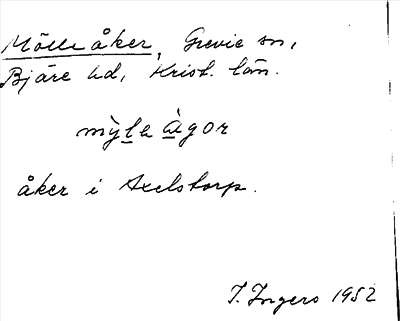 Mölle åker, Grevie sn,
Bjäre hd, Krist. län.
mỳle àgor
åker i Axelstorp.
I. Ingers 1952